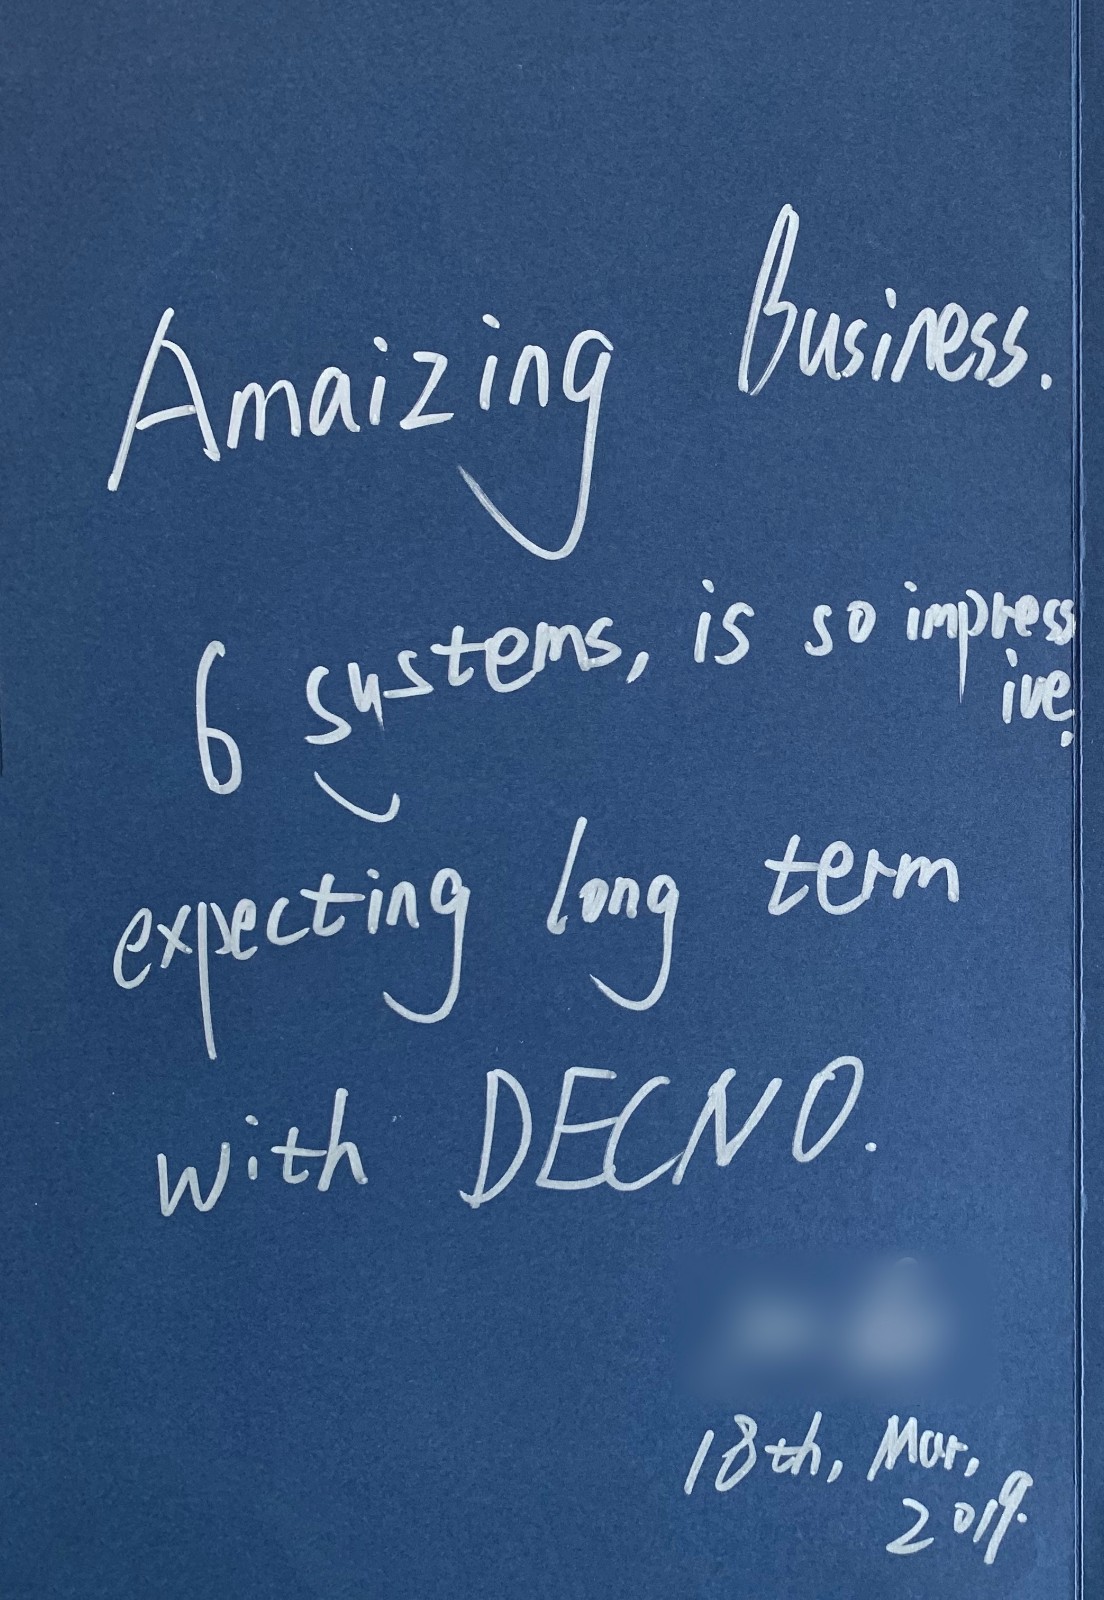 Amaizing Business.
6 systems, is so impress
ive.
expecting long term
with DECNO.
18th, Mar,
2019.